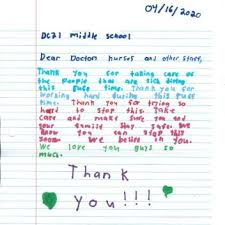 04/16/2020
DC21 middle school
Dear Doctors nurses and other staff,
Thank you for taking care of
the people that are sick during
this time. Thank you for
working hard during this
time. Thank you for trying so
hard to stop this. Take
care and make sure you and
your family stay safe. We
know you can stop this
soon. We belive in you.
We love you guys so
much.
Thank
you!!!